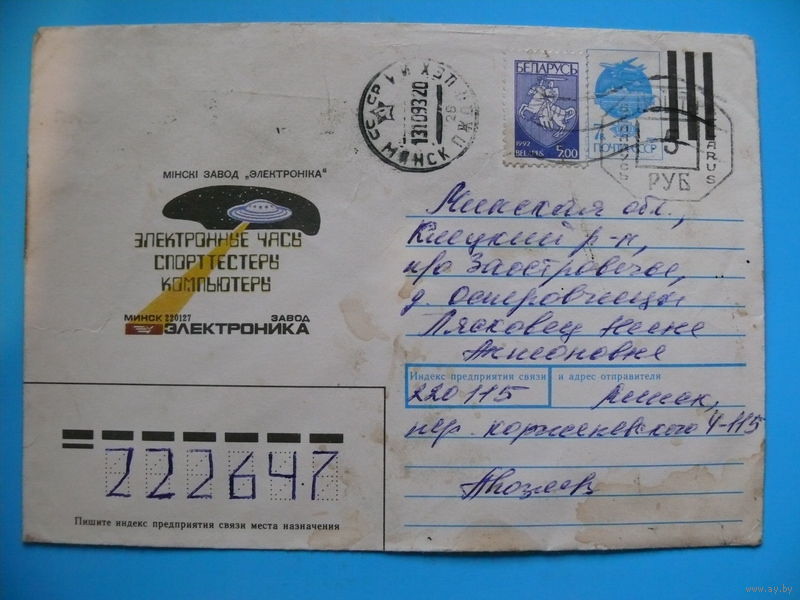 МІНСКІ ЗАВОД „ЭЛЕКТРОНІКА"
ЭЛЕКТРОННЫЕ ЧАСЫ
СПОРТТЕСТЕРЫ
КОМПЬЮТЕРЫ
МИНСК 220127 ЗАВОД
ЭЛЕКТРОНИКА
СССР МИНСК
13109320
БЕЛАРУСЬ
1992
BELARUS 5.00
7к
ПОЧТА СССР
РУБ
Минская обл.,
Клецкий р-н,
п/о Заостровечье,
д. Островчицы
Лясковец Нине
Антоновне
Индекс предприятия связи и адрес отправителя
220115 Минск,
пер. Корженевского 4-115
222647
Пишите индекс предприятия связи места назначения
www.ay.by